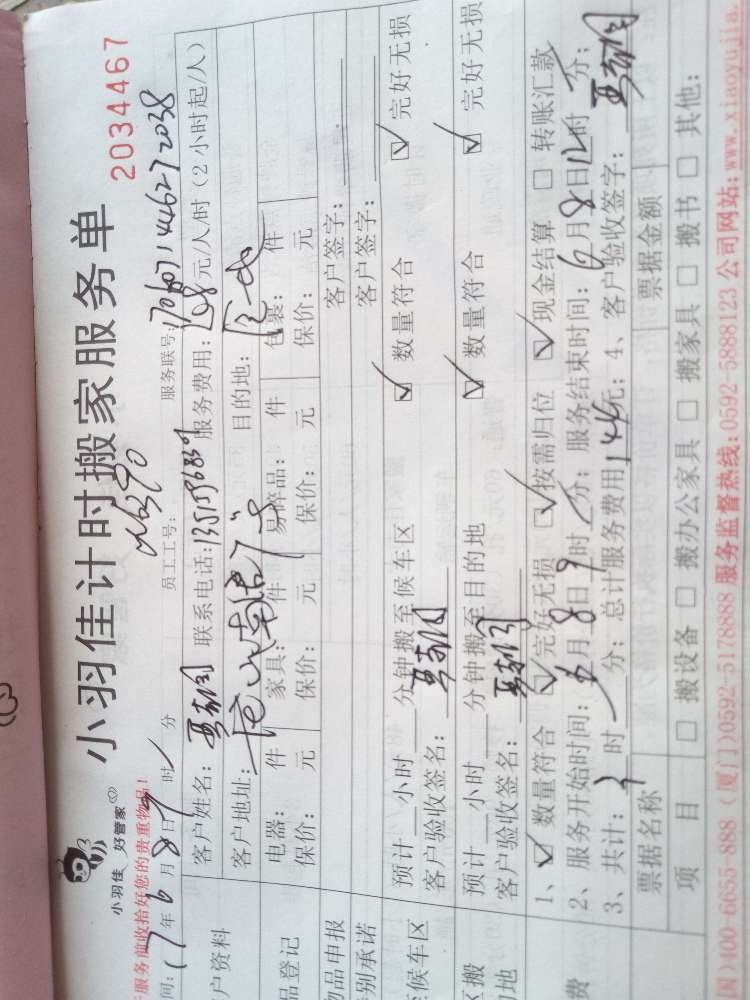 小羽佳 好管家
小羽佳计时搬家服务单
2034467
服务前收拾好您的贵重物品!
间: 17年6月8日9时 分
员工工号:
服务联号:
客户资料
客户姓名: 联系电话: 服务费用: 元/人/时(2小时起/人)
客户地址: 目的地:
品登记
电器: 件 家具: 件 易碎品: 件 包装: 件
保价: 元 保价: 元 保价: 元 保价: 元
物品申报 客户签字:
别承诺 客户签字:
候车区
预计 小时 分钟搬至候车区 ☑ 数量符合 ☑ 完好无损
客户验收签名:
区搬
地
预计 小时 分钟搬至目的地 ☑ 数量符合 ☑ 完好无损
客户验收签名:
费
1、☑ 数量符合 ☑ 完好无损 ☑ 按需归位 ☑ 现金结算 □ 转账汇款
2、服务开始时间: 月8日9时 分; 服务结束时间: 6月8日12时 分;
3、共计: 3时 分; 总计服务费用144元; 4、客户验收签字:
票据名称 票据金额
项 目 □ 搬设备 □ 搬办公家具 □ 搬家具 □ 搬书 □ 其他:
国)400-6655-888 (厦门)0592-5178888 服务监督热线: 0592-5888123 公司网站: www.xiaoyujia.